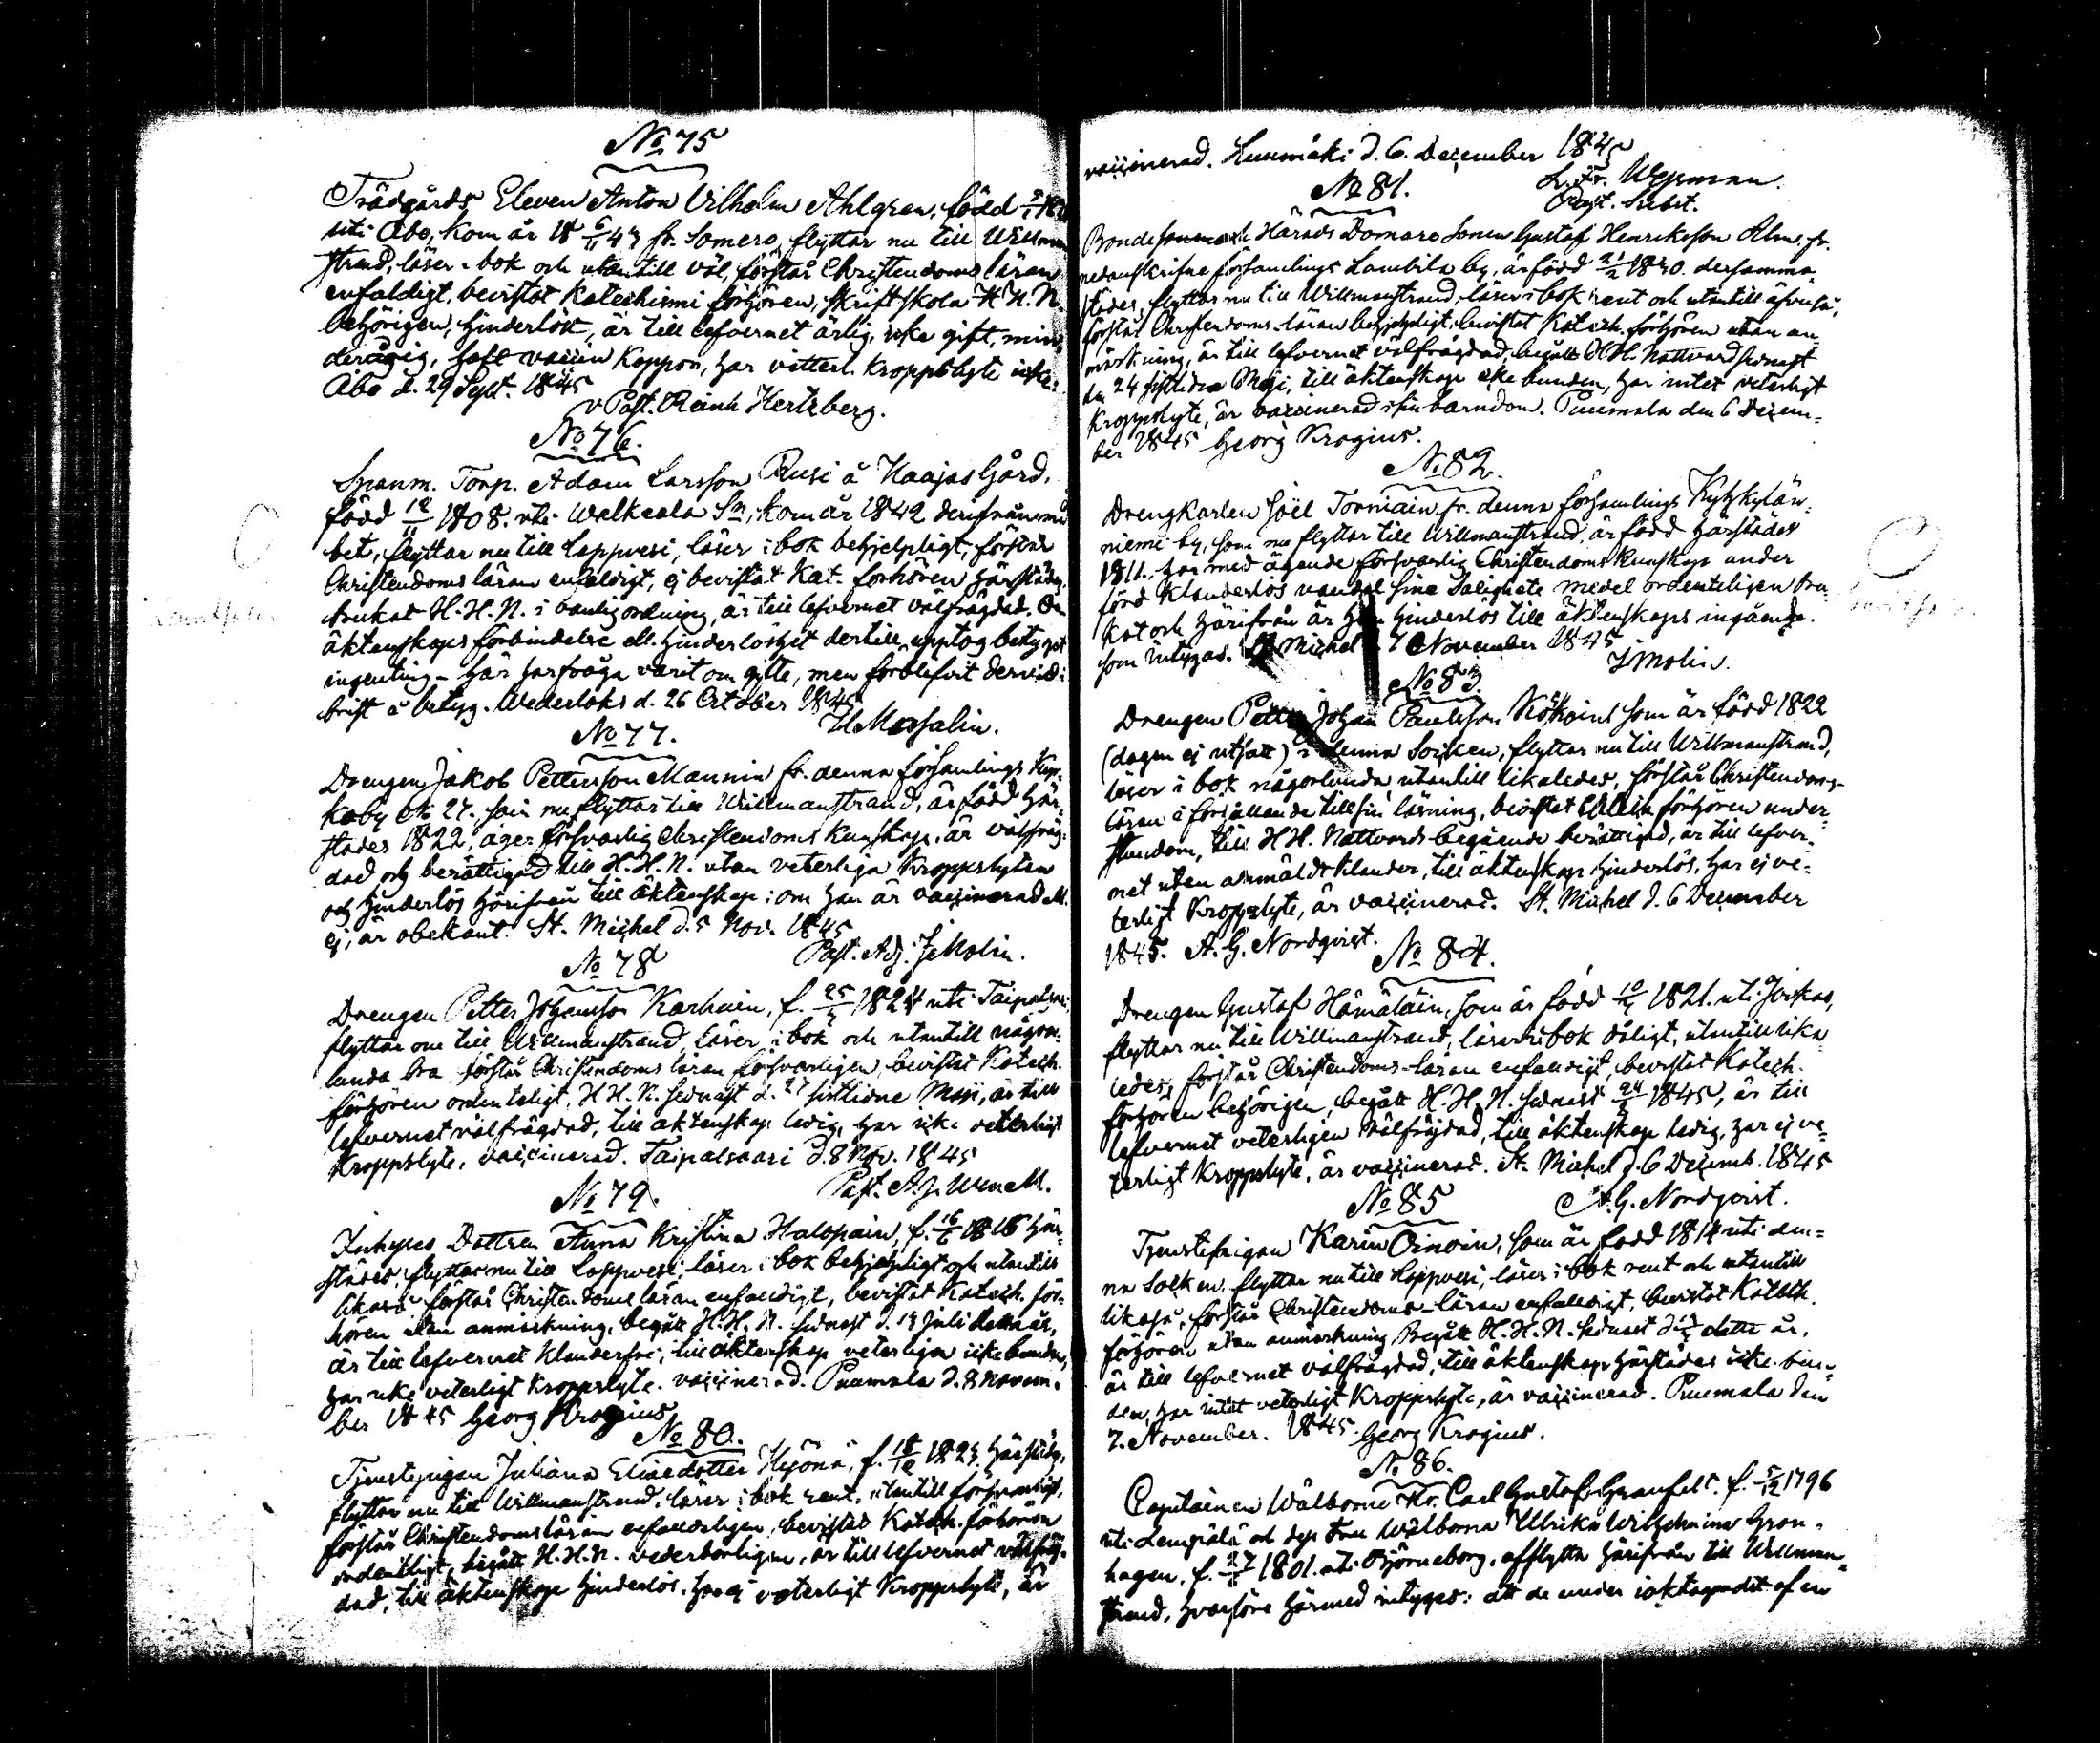 No 75
Trädgårds Eleven Anton Vilhelm Ahlgren, född
uti Åbo, kom år 18 6/11 43 fr. Somero, flyttar nu till Willman
strand, läser i bok och utantill väl, förstår Christendoms läran
enfaldigt, bevistat Katechismi förhören, skriftskola H. H. N.
behörigen, hinderlöst, är till lefvernet ärlig, icke gift, min
derårig, haft vaccin Koppor, har vitterl. kroppslyte icke.
Åbo d. 29 Sept. 1845
v Past. Reinh Hertzberg.
No 76.
Spanm. Torp. Adam Larsson Rusi å Haajas Gård,
född 12/11 1808. uti Walkeala Sn, kom år 1842 derifrån med
bet, flyttar nu till Lappvesi, läser i bok behjelpligt, förstår
Christendoms läran enfaldigt, ej bevistat Kat. förhören härstädes,
brukat H. H. N. i vanlig ordning, är till lefvernet välfrägdad. Om
äktenskaps förbindelse ell. hinderlöshet dertill upptog betyget
ingenting - här har fråga varit om gifte, men förblefvit dervid i
brist å betyg. Wederlaks d. 26 October 1845
H Massalin.
No 77.
Drengen Jakob Pettersson Mannin fr. denna församlings Kyr-
koby No 27. som nu flyttar till Willmanstrand, är född här
städes 1822, äger försvarlig Christendoms kunskap, är välfräg-
dad och berättigad till H. H. N. utan veterliga Kroppslyten
och hinderlös härifrån till äktenskap; om han är vaccinerad ell.
ej, är obekant. St. Michel d. 5 Nov. 1845
Past. Adj. J Molin.
No 78
Drengen Petter Johansson Karhuin, f. 25/5 1824 uti Taipalsari,
flyttar nu till Willmanstrand, läser i bok och utantill någor-
lunda bra, förstår Christendoms läran försvarligen, bevistat Katech.
förhören ordenteligt, H. H. N. sednast d. 27 sistlidne Maji, är till
lefvernet välfrägdad, till äktenskap ledig, har icke veterligt
Kroppslyte, vaccinerad. Taipalsaari d. 8 Nov. 1845
Past. A.
No 79.
Inhyses Dottren Anna Kristina Halopain, f. 16/6 1826 här-
städes, flyttar nu till Lappvesi, läser i bok behjelpligt och utantill
likaså förstår Christendoms läran enfaldigt, bevistat Katech. för-
hören utan anmärkning, begått H. H. N. sednast d. 13 Juli detta år,
är till lefvernet Klanderfri, till äktenskap veterligen icke bunden,
har icke veterligt Kroppslyte. vaccinerad. Puumala d. 8 Novem-
ber 1845 Georg Krogius
No 80.
Tjenstepigan Juliana Eliaedotter Hyöna, f. 18/12 1823 härstädes,
flyttar nu till Willmanstrand, läser i bok rent, utantill försvarligt,
förstår Christendoms läran enfaldeligen, bevistat Katech. förhören
ordentligt, begått H. H. N. vederbörligen, är till lefvernet välfräg-
dad, till äktenskap hinderlös, har ej veterligt Kroppslyte, är
vaccinerad. Husumäki d. 6. December 1845
L. Fr. Wegman.
Past. Subst.
No 81.
Bondesonen och Härads Domare Sonen Gustaf Henriksson Alm. fr.
nedanskrifne församlings Lambila by, är född 21/2 1820. dersamma-
städes, flyttar nu till Willmanstrand, läser i bok rent och utantill äfvenså,
förstår Christendoms-läran behjelpligt, bevistat Katech. förhören utan an-
märkning, är till lefvernet välfrägdad, begått H. H. Nattvard sednast
den 24 sistlidne Maji, till äktenskap icke bunden, har intet veterligt
Kroppslyte, är vaccinerad i sin barndom. Puumala den 6 Decem-
ber 1845 Georg Krogius.
No 82.
Drengkarlen Joël Torniain fr. denna församlings Kyhkylän-
niemi by, som nu flyttar till Willmanstrand, är född härstädes
1811., har med ägande försvarlig Christendoms kunskap under
förd Klanderlös vandel sine Salighets medel ordenteligen bru-
kat och härifrån är han hinderlös till äktenskaps ingående.
som intygas. St Michel d. 7 November 1845
J Molin.
No 83.
Drengen Petter Johan Paulsson Kökoint som är född 1822
(dagen ej utsatt) i denna Socken, flyttar nu till Willmanstrand,
läser i bok någorlunda utantill likaledes, förstår Christendoms-
läran i förhållande till sin läsning, bevistat förhören under-
stundom, till H. H. Nattvards-begående berättigad, är till lefver-
net utan anmäldt klander, till äktenskap hinderlös, har ej ve-
terligt Kroppslyte, är vaccinerad. St. Michel d. 6 December
1845. A. G. Nordqvist.
No 84.
Drengen Gustaf Hämäläin, som är född 10/4 1821. uti Jockas,
flyttar nu till Willmanstrand, läser i bok dåligt, utantill lika-
ledes, förstår Christendoms-läran enfaldigt, bevistat Katech.
förhören behörigen, begått H. H. N. sednast 24/5 1845, är till
lefvernet veterligen välfrejdad, till äktenskap ledig, har ej ve-
terligt Kroppslyte, är vaccinerad. St. Michel d. 6 Decemb. 1845
A. G. Nordqvist.
No 85
Tjenstepigan Karin Oinoin, som är född 1814 uti den-
na Socken, flyttar nu till Lappvesi, läser i bok rent och utantill
likaså, förstår Christendoms-läran enfaldigt, bevistat Katech.
förhören utan anmärkning Begått H. H. N. sednast d. detta år,
är till lefvernet välfrägdad, till äktenskap härstädes icke bun-
den, har intet veterligt Kroppslyte, är vaccinerad. Puumala den
7. November. 1845. Georg Krogius.
No 86.
Capitainen Wälborne Hr. Carl Gustaf Granfelt. f. 5/12 1796
uti Lempälä och dess Fru Wälborna Ulrika Wilhelmina Gron-
hagen. f. 27/8 1801. uti Björneborg, afflytta härifrån till Willman-
strand, hvarföre härmed intygas: att de under iakttagandet af en